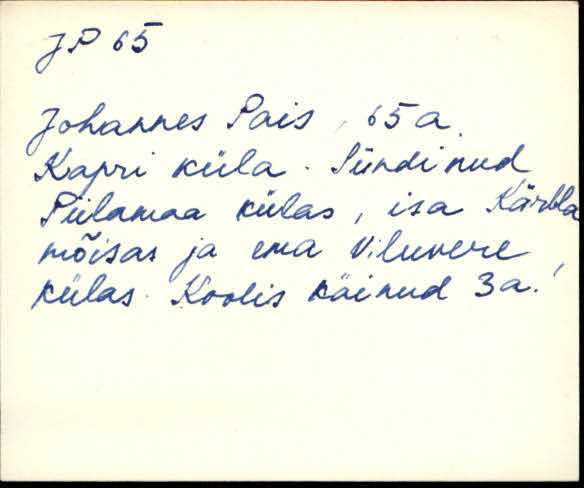 JP 65
Johannes Pais, 65 a.
Kapri küla. Sündinud
Piilamaa külas, isa Kärbla
mõisas ja ema Viluvere
külas. Koolis käinud 3 a.